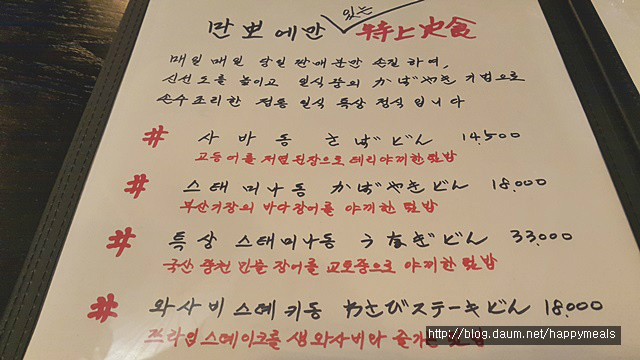 만뽀에만 있는 特上定食
매일 매일 당일 판매분만 손질 하여,
신선도를 높이고 일식장의 かばやき 기법으로
손수조리한 정통 일식 특상 정식 입니다
# 사바동 さばどん 14,500
고등어를 저염된장으로 데리야끼한 덮밥
# 스태미나동 かばやきどん 18,000
부산기장의 바다장어를 야끼한 덮밥
# 특상 스태미나동 うなぎどん 33,000
국산 풍천 민물 장어를 교토풍으로 야끼한 덮밥
# 와사비스테키동 わさびステーキどん 18,000
쯔라입스테이크를 생와사비와
http://blog.daum.net/happymeals